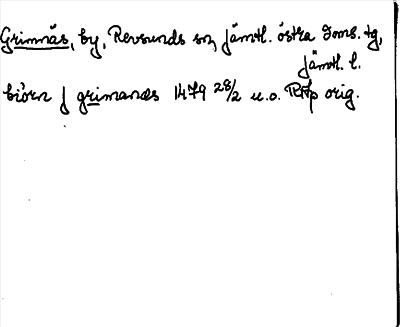 Grimnäs, by, Revsunds sn, Jämtl. östra doms. tg,
Jämtl. l.
biörn j grimanæs 1479 28/2 u.o. RAp orig.